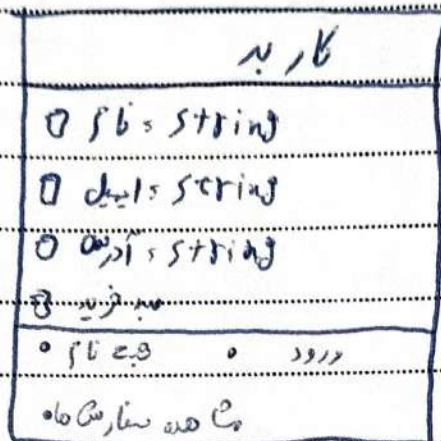 کاربر
نام : string
ایمیل : string
آدرس : string
سبد خرید
ثبت نام • ورود •
مشاهده سفارش ها •